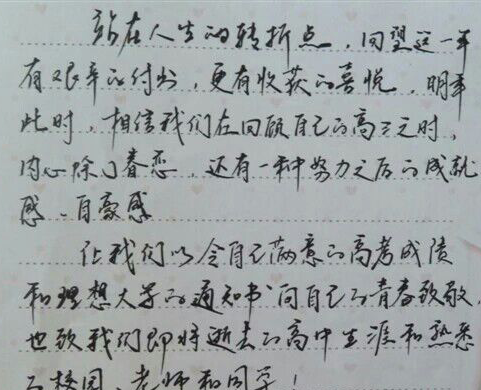 站在人生的转折点，回望这一年
有艰辛的付出，更有收获的喜悦，明年
此时，相信我们在回顾自己的高三之时，
内心除了眷恋，还有一种努力之后的成就
感、自豪感
让我们以令自己满意的高考成绩
和理想大学的通知书向自己的青春致敬，
也致我们即将逝去的高中生涯和熟悉
的校园、老师和同学！